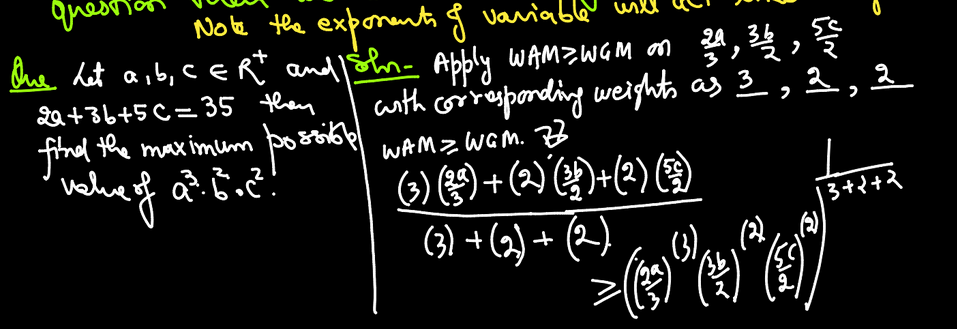 question when
Note the exponents of variable will act
Que Let a, b, c ∈ R⁺ and
2a+3b+5c=35 then
find the maximum possible
value of a³.b².c².
Soln- Apply WAM≥WGM on 2a/3, 3b/2, 5c/2
with corresponding weights as 3, 2, 2
WAM≥WGM. ⇒
((3)(2a/3)+(2)(3b/2)+(2)(5c/2))/((3)+(2)+(2))
≥((2a/3)^(3) (3b/2)^(2) (5c/2)^(2))^(1/(3+2+2))